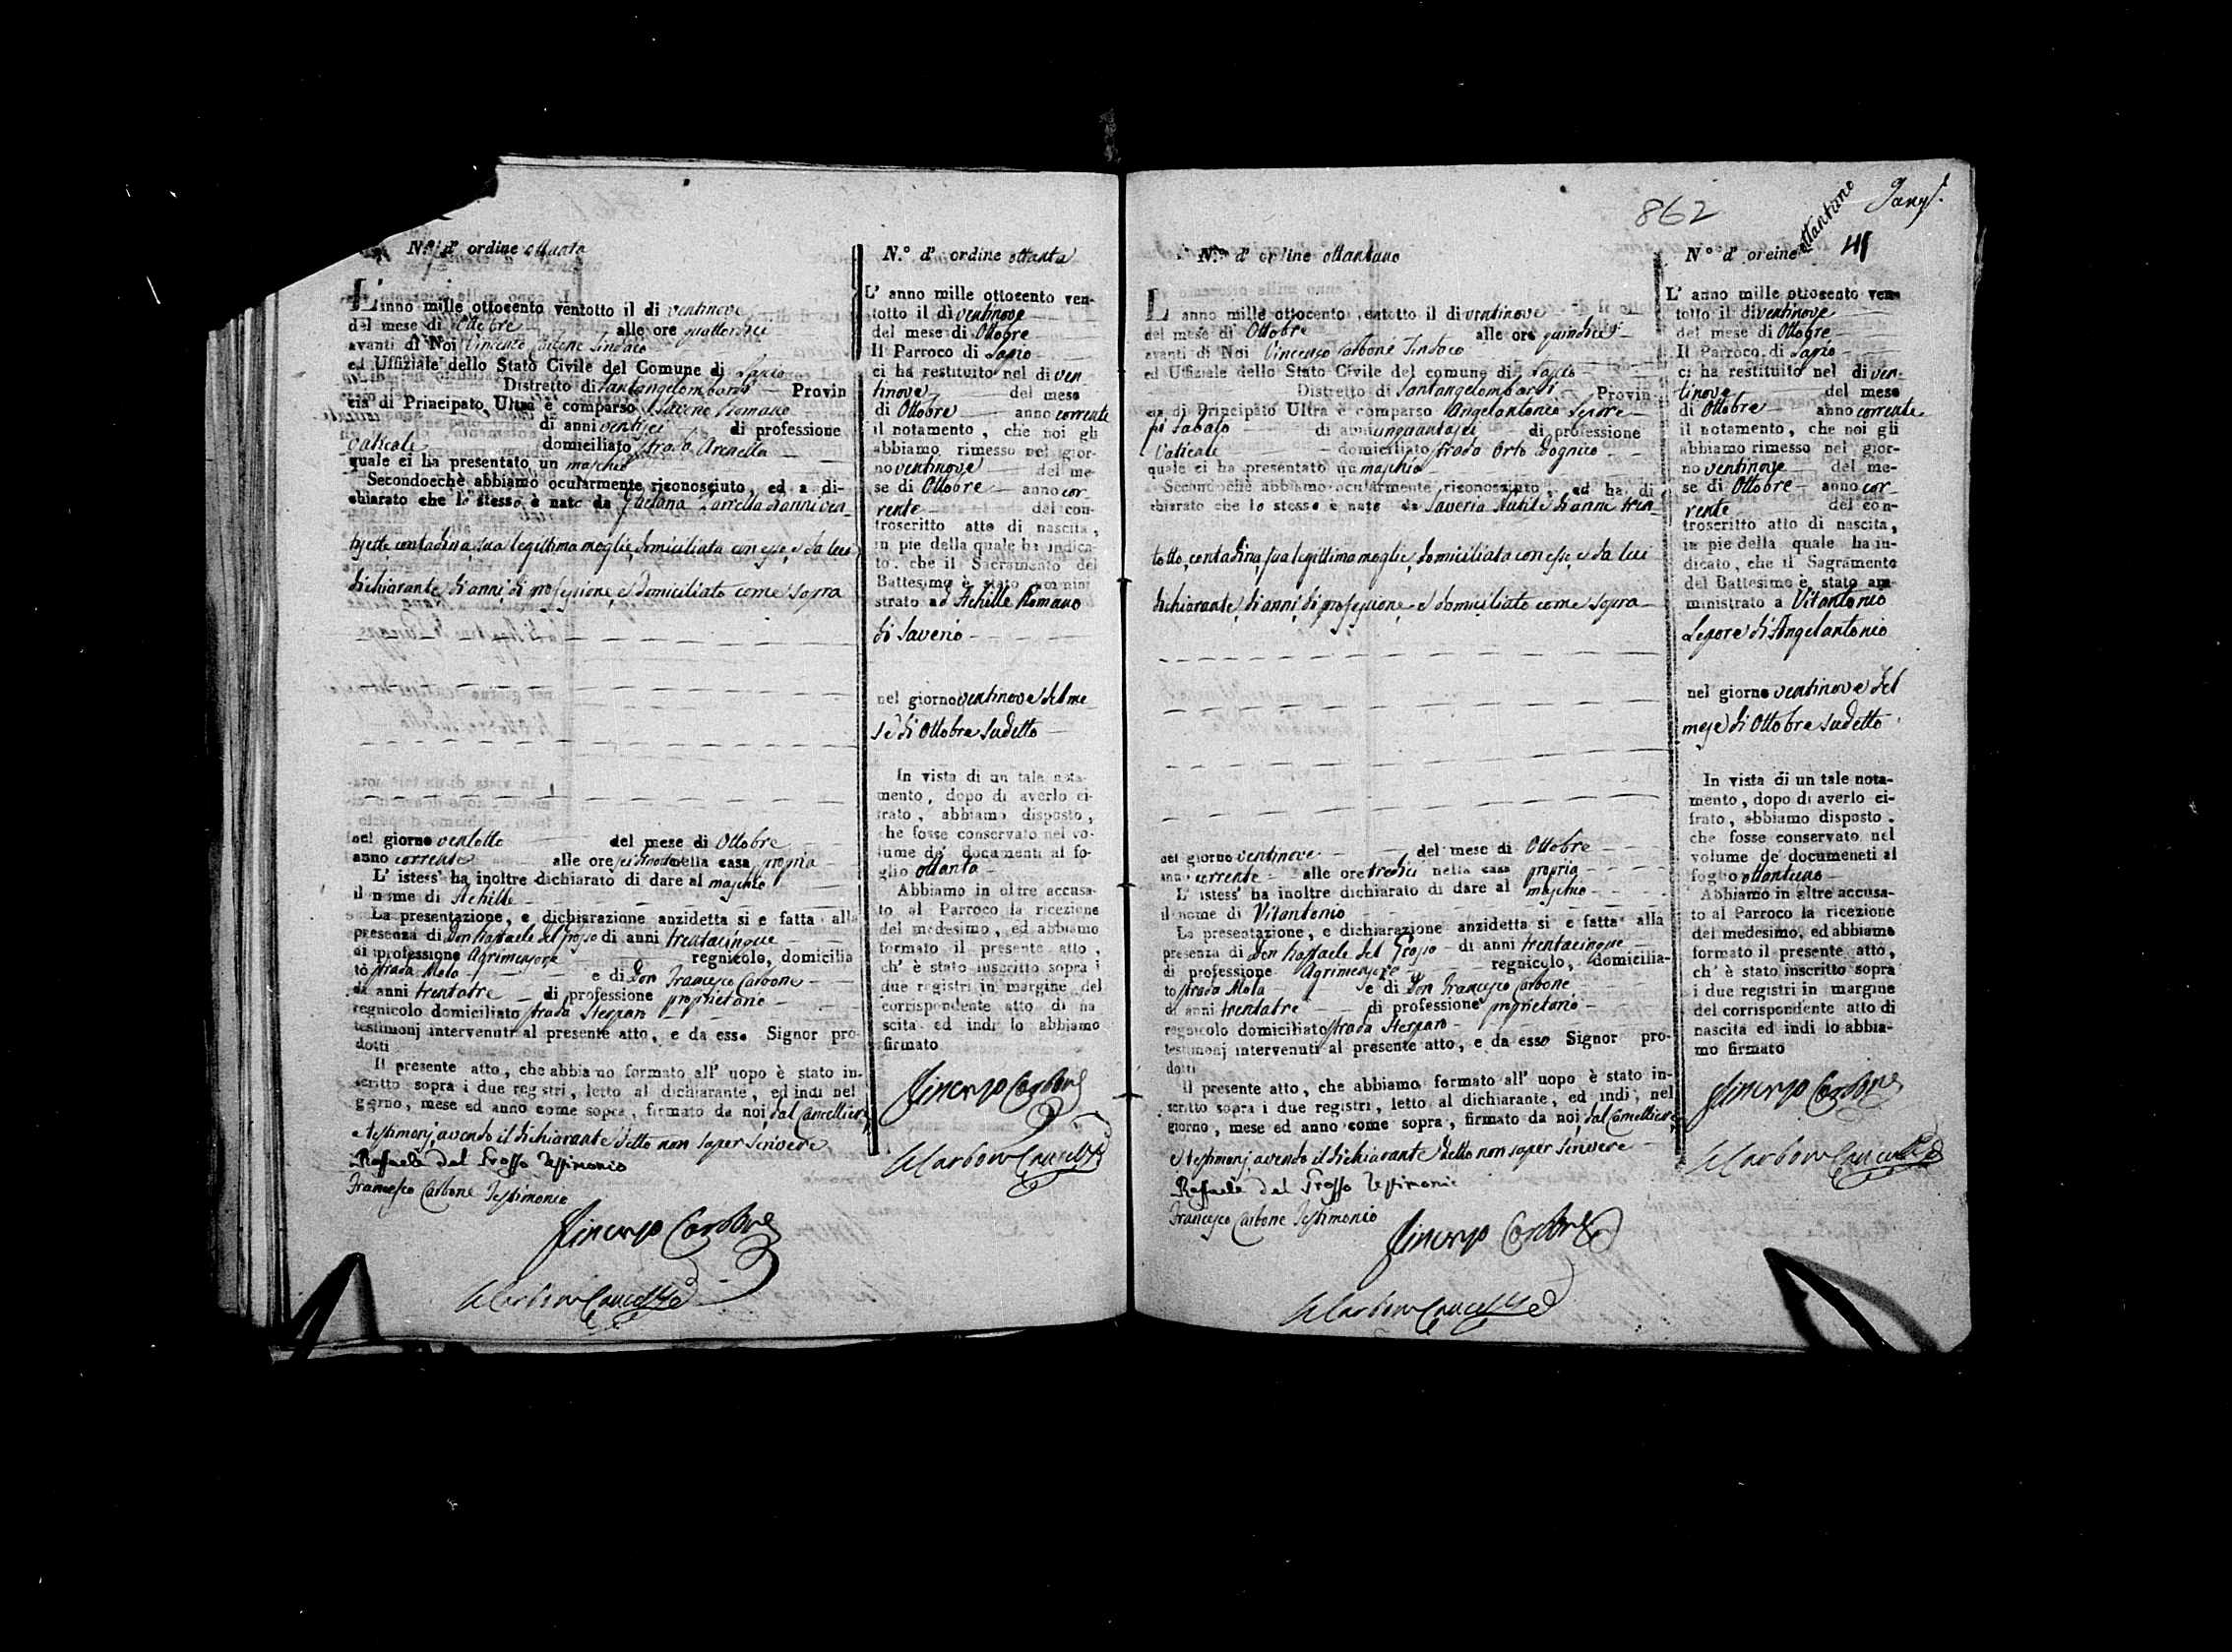 N.° d' ordine ottanta
L'anno mille ottocento ventotto il di ventinove
del mese di Ottobre alle ore quattordici
avanti di Noi Vincenzo Carbone Sindaco
ed Uffiziale dello Stato Civile del Comune di Lapio
Distretto di Santangelombardi Provin
cia di Principato Ultra è comparso Saverio Romano
di anni ventisei di professione
Vaticale domiciliato strada Arenella
quale ci ha presentato un maschio
Secondoechè abbiamo ocularmente riconosciuto, ed a di-
chiarato che lo stesso è nato da Gaetana Zarrella di anni ven-
tisette, contadina, sua legittima moglie, domiciliata con esso, e da lui
dichiarante, di anni, di professione, e domiciliato come sopra
nel giorno ventotto del mese di Ottobre
anno corrente alle ore nella casa propria
L' istess' ha inoltre dichiarato di dare al maschio
il nome di Achille
La presentazione, e dichiarazione anzidetta si e fatta alla
presenza di Don Raffaele del Grosso di anni trentacinque
di professione Agrimensore regnicolo, domicilia
to strada Mola e di Don Francesco Carbone
di anni trentatre di professione proprietario
regnicolo domiciliato strada
testimonj intervenuti al presente atto, e da esso Signor pro-
dotti
Il presente atto, che abbiamo formato all' uopo è stato in-
scritto sopra i due registri, letto al dichiarante, ed indi nel
giorno, mese ed anno come sopra, firmato da noi, dal Cancelliere,
e testimonj, avendo il dichiarante detto non saper scrivere
Raffaele del Grosso Testimonio
Francesco Carbone Testimonio
Vincenzo Carbone
Carbone Cancelliere
N.° d' ordine ottanta
L' anno mille ottocento ven-
totto il dì ventinove
del mese di Ottobre
Il Parroco di Lapio
ci ha restituito nel di ven-
tinove del mese
di Ottobre anno corrente
il notamento, che noi gli
abbiamo rimesso nel gior-
no ventinove del me-
se di Ottobre anno cor-
rente del con-
troscritto atto di nascita,
in pie della quale ha indica-
to. che il Sacramento del
Battesimo è stato ammini
strato ad Achille Romano
di Saverio
nel giorno ventinove del me
se di Ottobre sudetto
In vista di un tale nota-
mento, dopo di averlo ci-
frato, abbiamo disposto,
che fosse conservato nel vo-
lume de' documenti al fo-
glio ottanta
Abbiamo in oltre accusa-
to al Parroco la ricezione
del medesimo, ed abbiamo
formato il presente atto,
ch' è stato inscritto sopra i
due registri in margine del
corrispondente atto di na
scita ed indi lo abbiamo
firmato
Vincenzo Carbone
Carbone Cancelliere
862
ottantuno
N.° d' ordine ottantuno
L'anno mille ottocento ventotto il di ventinove
del mese di Ottobre alle ore quindici
avanti di Noi Vincenzo Carbone Sindaco
ed Uffiziale dello Stato Civile del comune di Lapio
Distretto di Santangelombardi Provin
cia di Principato Ultra è comparso Angelantonio Lepore
di anni cinquantasei di professione
Vaticale domiciliato strada Orto
quale ci ha presentato un maschio
Secondochè abbiamo ocularmente riconosciuto, ed ha di
chiarato che lo stesso è nato da Saveria di anni tren-
totto, contadina, sua legittima moglie, domiciliata con esso, e da lui
dichiarante, di anni, di professione e domiciliato come sopra
nel giorno ventinove del mese di Ottobre
anno corrente alle ore tredici nella casa propria
L' istess' ha inoltre dichiarato di dare al maschio
il nome di Vitantonio
La presentazione, e dichiarazione anzidetta si e fatta alla
presenza di Don Raffaele del Grosso di anni trentacinque
di professione Agrimensore regnicolo, domicilia-
to strada Mola e di Don Francesco Carbone
di anni trentatre di professione proprietario
regnicolo domiciliato strada
testimonj intervenuti al presente atto, e da esso Signor pro-
dotti
Il presente atto, che abbiamo formato all' uopo è stato in-
scritto sopra i due registri, letto al dichiarante, ed indi, nel
giorno, mese ed anno come sopra, firmato da noi, dal Cancelliere,
e testimonj, avendo il dichiarante detto non saper scrivere
Raffaele del Grosso Testimonio
Francesco Carbone Testimonio
Vincenzo Carbone
Carbone Cancelliere
N° d' oreine
L' anno mille ottocento ven
totto il di ventinove
del mese di Ottobre
Il Parroco di Lapio
ci ha restituito nel di ven-
tinove del mese
di Ottobre anno corrente
il notamento, che noi gli
abbiamo rimesso nel gior-
no ventinove del me-
se di Ottobre anno cor-
rente del con-
troscritto atto di nascita,
in pie della quale ha in-
dicato, che il Sagramento
del Battesimo è stato am-
ministrato a Vitantonio
Lepore di Angelantonio
nel giorno ventinove del
mese di Ottobre sudetto
In vista di un tale nota-
mento, dopo di averlo ci-
frato, abbiamo disposto.
che fosse conservato nel
volume de' documeneti al
foglio ottantuno
Abbiamo in altre accusa-
to al Parroco la ricezione
del medesimo, ed abbiamo
formato il presente atto,
ch' è stato inscritto sopra
i due registri in margine
del corrispondente atto di
nascita ed indi lo abbia-
mo firmato
Vincenzo Carbone
Carbone Cancelliere